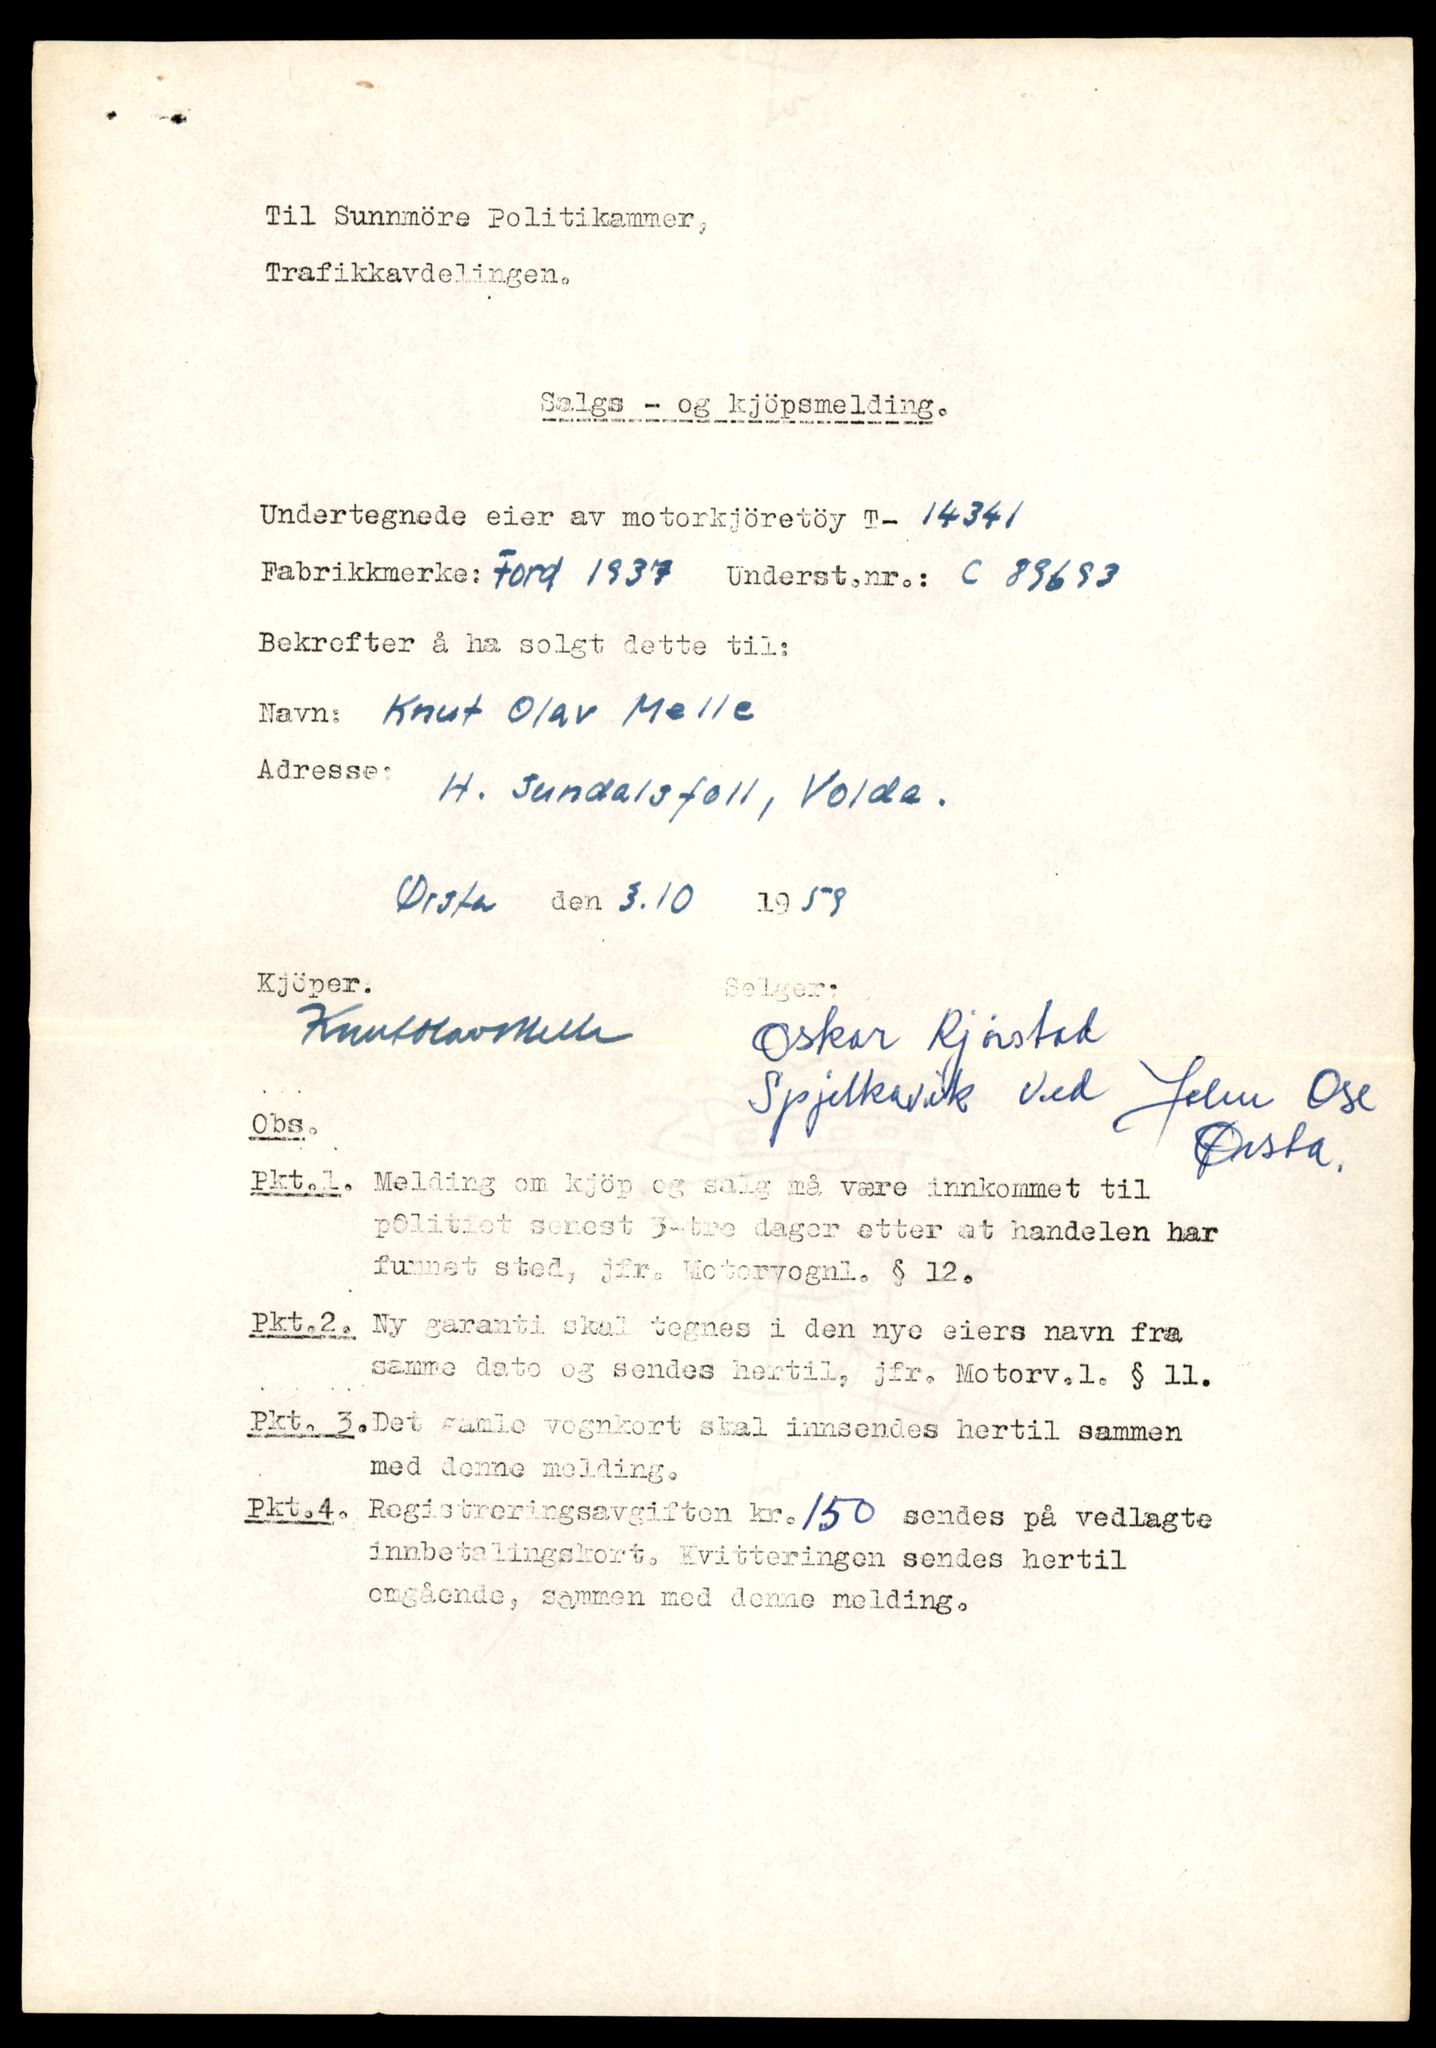 Til Sunnmöre Politikammer,
Trafikkavdelingen.
Salgs - og kjöpsmelding.
Undertegnede eier av motorkjöretöy T- 14341
Fabrikkmerke: Ford 1937 Underst.nr.: C 89693
Bekrefter å ha solgt dette til:
Navn: Knut Olav Melle
Adresse: H. Sundalsfoll, Volda.
Ørsta den 3.10 1959
Kjöper. Selger:
Knut Olav Melle Oskar Rjörstad
Spjelkavik ved John Ose
Ørsta.
Obs.
Pkt.1. Melding om kjöp og salg må være innkommet til
politiet senest 3-tre dager etter at handelen har
funnet sted, jfr. Motorvognl. § 12.
Pkt.2. Ny garanti skal tegnes i den nye eiers navn fra
samme dato og sendes hertil, jfr. Motorv.l. § 11.
Pkt. 3. Det gamle vognkort skal innsendes hertil sammen
med denne melding.
Pkt.4. Registreringsavgiften kr. 150 sendes på vedlagte
innbetalingskort. Kvitteringen sendes hertil
omgående, sammen med denne melding.